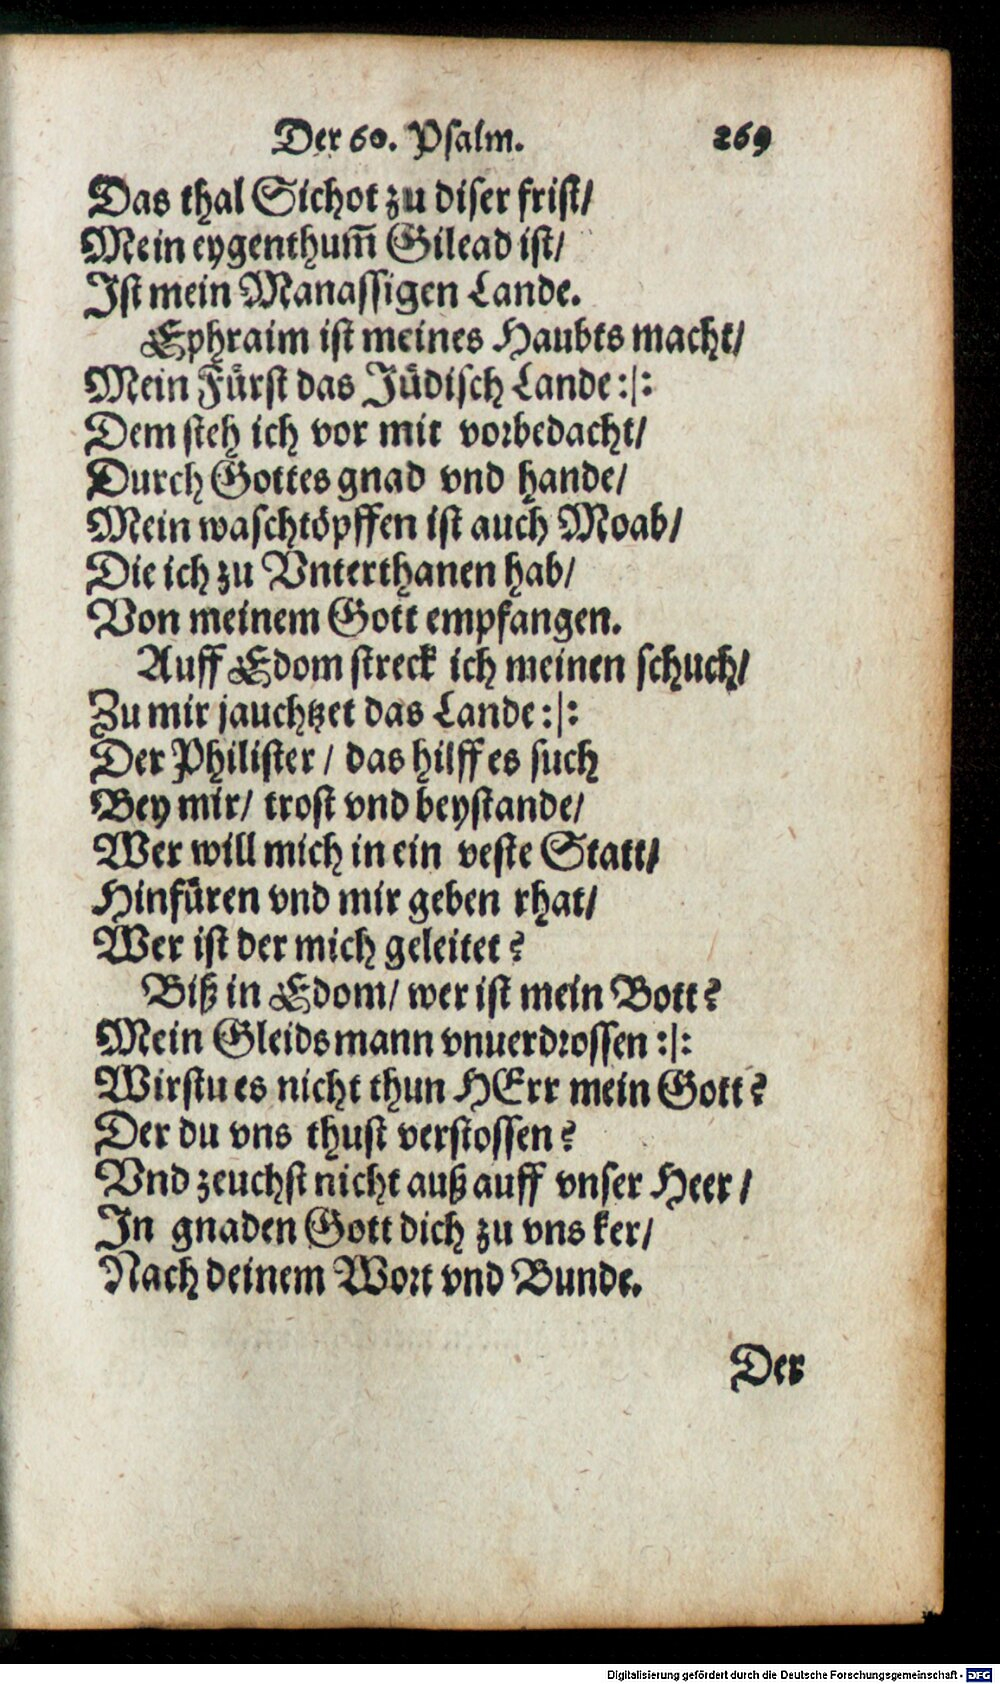 Der 60. Psalm. 269
Das thal Sichot zu diser frist/
Mein eygenthum̄ Gilead ist/
Ist mein Manassigen Lande.
Ephraim ist meines Haubts macht/
Mein Fürst das Jüdisch Lande :/:
Dem steh ich vor mit vorbedacht/
Durch Gottes gnad vnd hande/
Mein waschtöpffen ist auch Moab/
Die ich zu Vnterthanen hab/
Von meinem Gott empfangen.
Auff Edom streck ich meinen schuch/
Zu mir jauchtzet das Lande :/:
Der Philister / das hilff es such
Bey mir/ trost vnd beystande/
Wer will mich in ein veste Statt/
Hinfüren vnd mir geben rhat/
Wer ist der mich geleitet?
Biß in Edom/ wer ist mein Bott?
Mein Gleidsmann vnuerdrossen :/:
Wirstu es nicht thun HErr mein Gott?
Der du vns thust verstossen?
Vnd zeuchst nicht auß auff vnser Heer/
In gnaden Gott dich zu vns ker/
Nach deinem Wort vnd Bunde.
Der
Digitalisierung gefördert durch die Deutsche Forschungsgemeinschaft - DFG